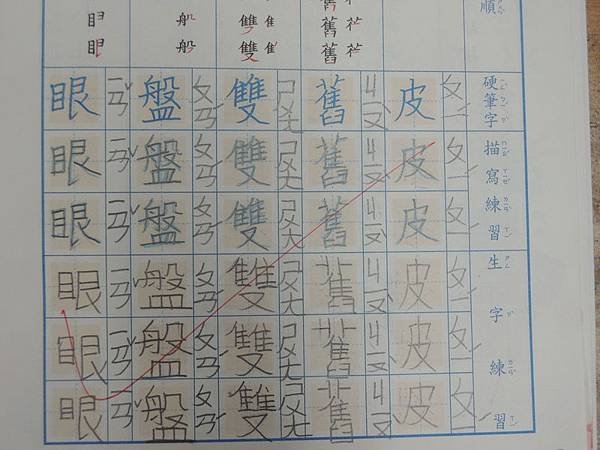 順
硬筆字描寫練習
生字練習
皮皮皮皮皮皮
ㄆㄧˊ ㄆㄧˊ ㄆㄧˊ ㄆㄧˊ ㄆㄧˊ ㄆㄧˊ
舊舊
舊舊舊舊舊舊
ㄐㄧㄡˋ ㄐㄧㄡˋ ㄐㄧㄡˋ ㄐㄧㄡˋ ㄐㄧㄡˋ ㄐㄧㄡˋ
雙
雙雙雙雙雙雙
ㄕㄨㄤ ㄕㄨㄤ ㄕㄨㄤ ㄕㄨㄤ ㄕㄨㄤ ㄕㄨㄤ
般
盤盤盤盤盤盤
ㄆㄢˊ ㄆㄢˊ ㄆㄢˊ ㄆㄢˊ ㄆㄢˊ ㄆㄢˊ
眼眼眼眼眼眼
ㄧㄢˇ ㄧㄢˇ ㄧㄢˇ ㄧㄢˇ ㄧㄢˇ ㄧㄢˇ